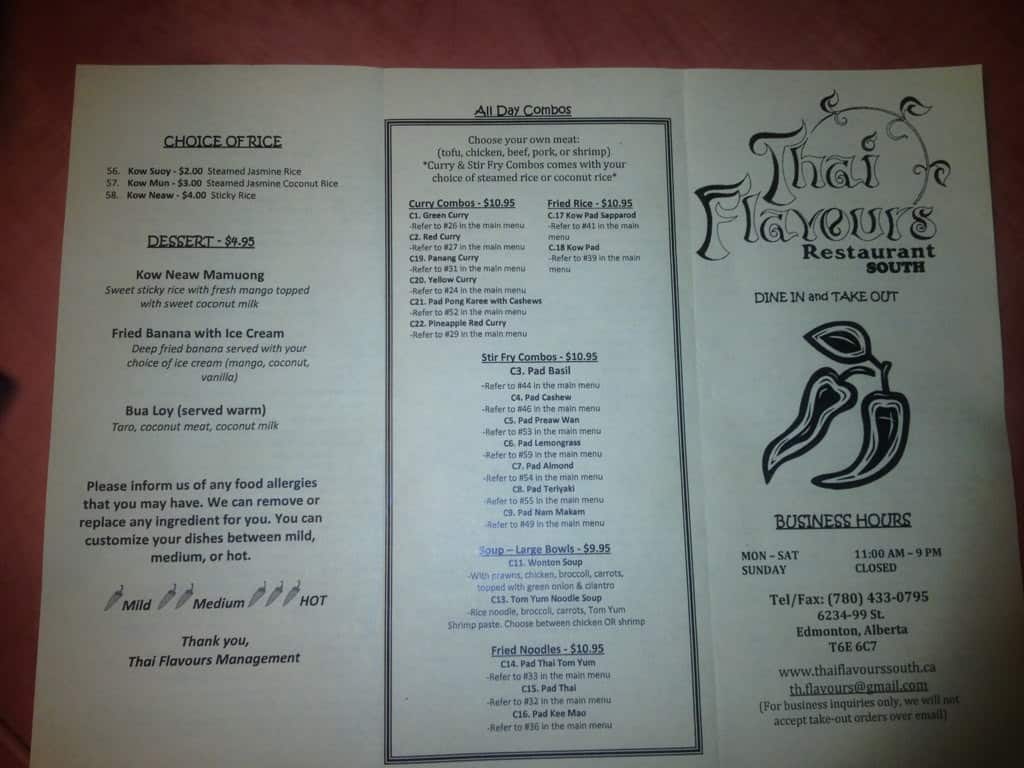 CHOICE OF RICE
56. Kow Suoy - $2.00 Steamed Jasmine Rice
57. Kow Mun - $3.00 Steamed Jasmine Coconut Rice
58. Kow Neaw - $4.00 Sticky Rice
DESSERT - $4.95
Kow Neaw Mamuong
Sweet sticky rice with fresh mango topped
with sweet coconut milk
Fried Banana with Ice Cream
Deep fried banana served with your
choice of ice cream (mango, coconut,
vanilla)
Bua Loy (served warm)
Taro, coconut meat, coconut milk
Please inform us of any food allergies
that you may have. We can remove or
replace any ingredient for you. You can
customize your dishes between mild,
medium, or hot.
Mild Medium HOT
Thank you,
Thai Flavours Management
All Day Combos
Choose your own meat:
(tofu, chicken, beef, pork, or shrimp)
*Curry & Stir Fry Combos comes with your
choice of steamed rice or coconut rice*
Curry Combos - $10.95
C1. Green Curry
-Refer to #26 in the main menu
C2. Red Curry
-Refer to #27 in the main menu
C19. Panang Curry
-Refer to #31 in the main menu
C20. Yellow Curry
-Refer to #24 in the main menu
C21. Pad Pong Karee with Cashews
-Refer to #52 in the main menu
C22. Pineapple Red Curry
-Refer to #29 in the main menu
Fried Rice - $10.95
C.17 Kow Pad Sapparod
-Refer to #41 in the main
menu
C.18 Kow Pad
-Refer to #39 in the main
menu
Stir Fry Combos - $10.95
C3. Pad Basil
-Refer to #44 in the main menu
C4. Pad Cashew
-Refer to #46 in the main menu
C5. Pad Preaw Wan
-Refer to #53 in the main menu
C6. Pad Lemongrass
-Refer to #59 in the main menu
C7. Pad Almond
-Refer to #54 in the main menu
C8. Pad Teriyaki
-Refer to #55 in the main menu
C9. Pad Nam Makam
-Refer to #49 in the main menu
Soup – Large Bowls - $9.95
C11. Wonton Soup
-With prawns, chicken, broccoli, carrots,
topped with green onion & cilantro
C13. Tom Yum Noodle Soup
-Rice noodle, broccoli, carrots, Tom Yum
Shrimp paste. Choose between chicken OR shrimp
Fried Noodles - $10.95
C14. Pad Thai Tom Yum
-Refer to #33 in the main menu
C15. Pad Thai
-Refer to #32 in the main menu
C16. Pad Kee Mao
-Refer to #36 in the main menu
Thai
Flavours
Restaurant
SOUTH
DINE IN and TAKE OUT
BUSINESS HOURS
MON – SAT 11:00 AM – 9 PM
SUNDAY CLOSED
Tel/Fax: (780) 433-0795
6234-99 St.
Edmonton, Alberta
T6E 6C7
www.thaiflavourssouth.ca
th.flavours@gmail.com
(For business inquiries only, we will not
accept take-out orders over email)